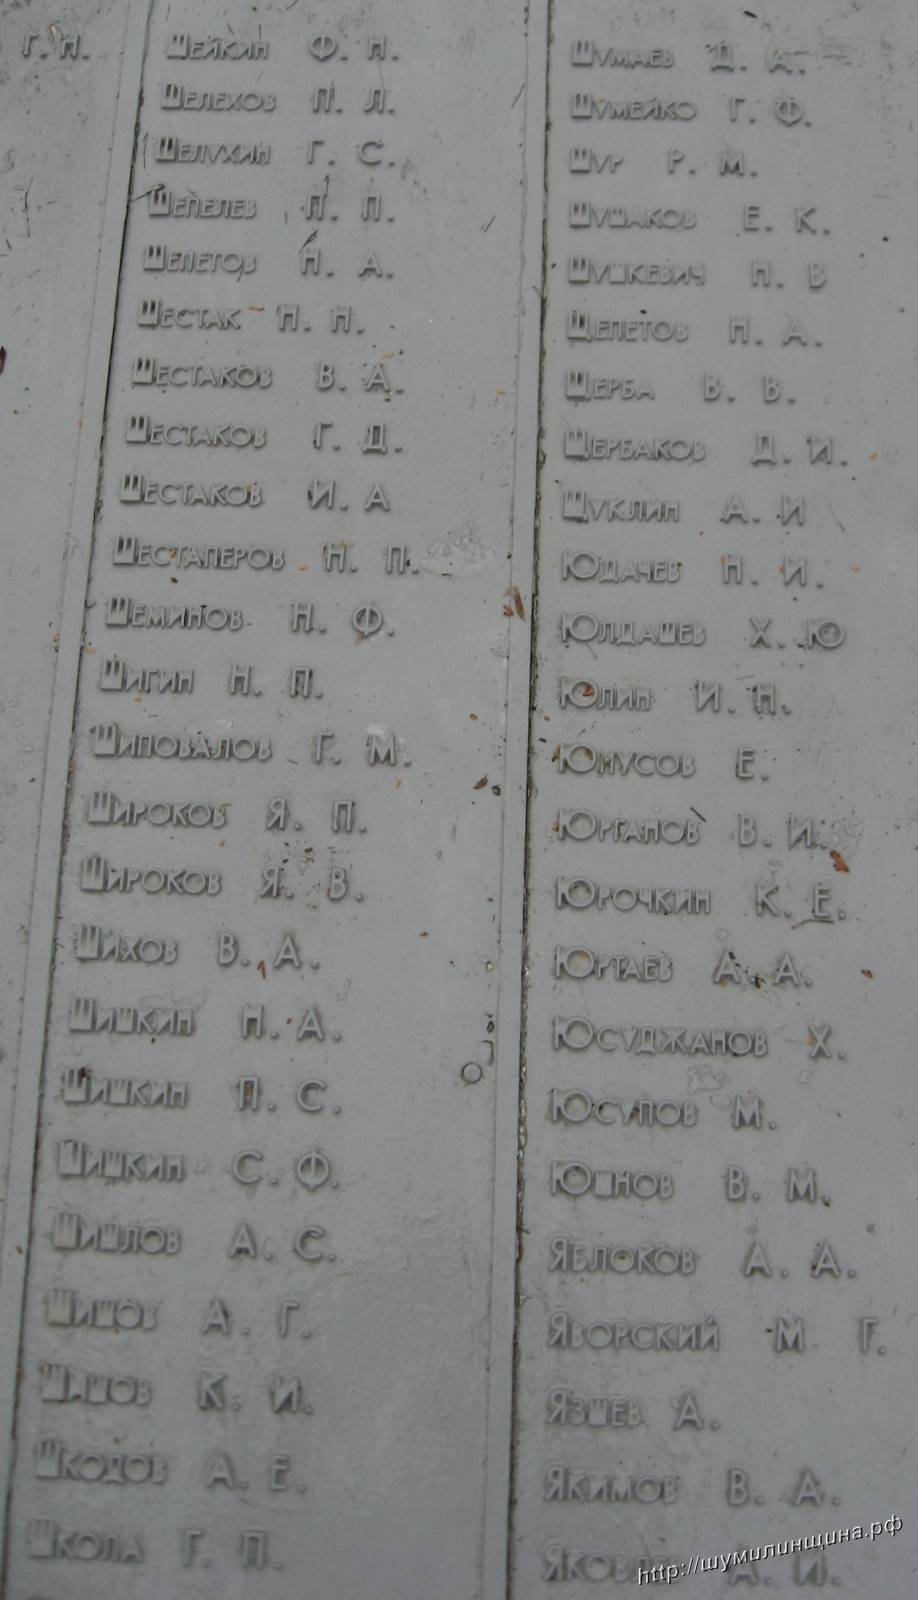 Г. Н.
Шейкин Ф. Н.
Шелехов П. Л.
Шелухин Г. С.
Шепелев П. П.
Шепетов Н. А.
Шестак Н. Н.
Шестаков В. А.
Шестаков Г. Д.
Шестаков И. А
Шестаперов Н. П.
Шеминов Н. Ф.
Шигин Н. П.
Шиповалов Г. М.
Широков Я. П.
Широков Я. В.
Шихов В. А.
Шишкин Н. А.
Шишкин П. С.
Шишкин С. Ф.
Шишлов А. С.
Шишов А. Г.
К. И.
Шкодов А. Е.
Школа Г. П.
Шумаев Д. А.
Шумейко Г. Ф.
Шур Р. М.
Шушаков Е. К.
Шушкевич Н. В
Щепетов Н. А.
Щерба В. В.
Щербаков Д. И.
Щуклин А. И
Юдачев Н. И.
Юлдашев Х. Ю
Юлин И. Н.
Юнусов Е.
Юрганов В. И.
Юрочкин К. Е.
Юртаев А. А.
Юсуджанов Х.
Юсупов М.
Юшнов В. М.
Яблоков А. А.
Яворский М Г.
Язшев А.
Якимов В. А.
А. И.
http://шумилинщина.рф